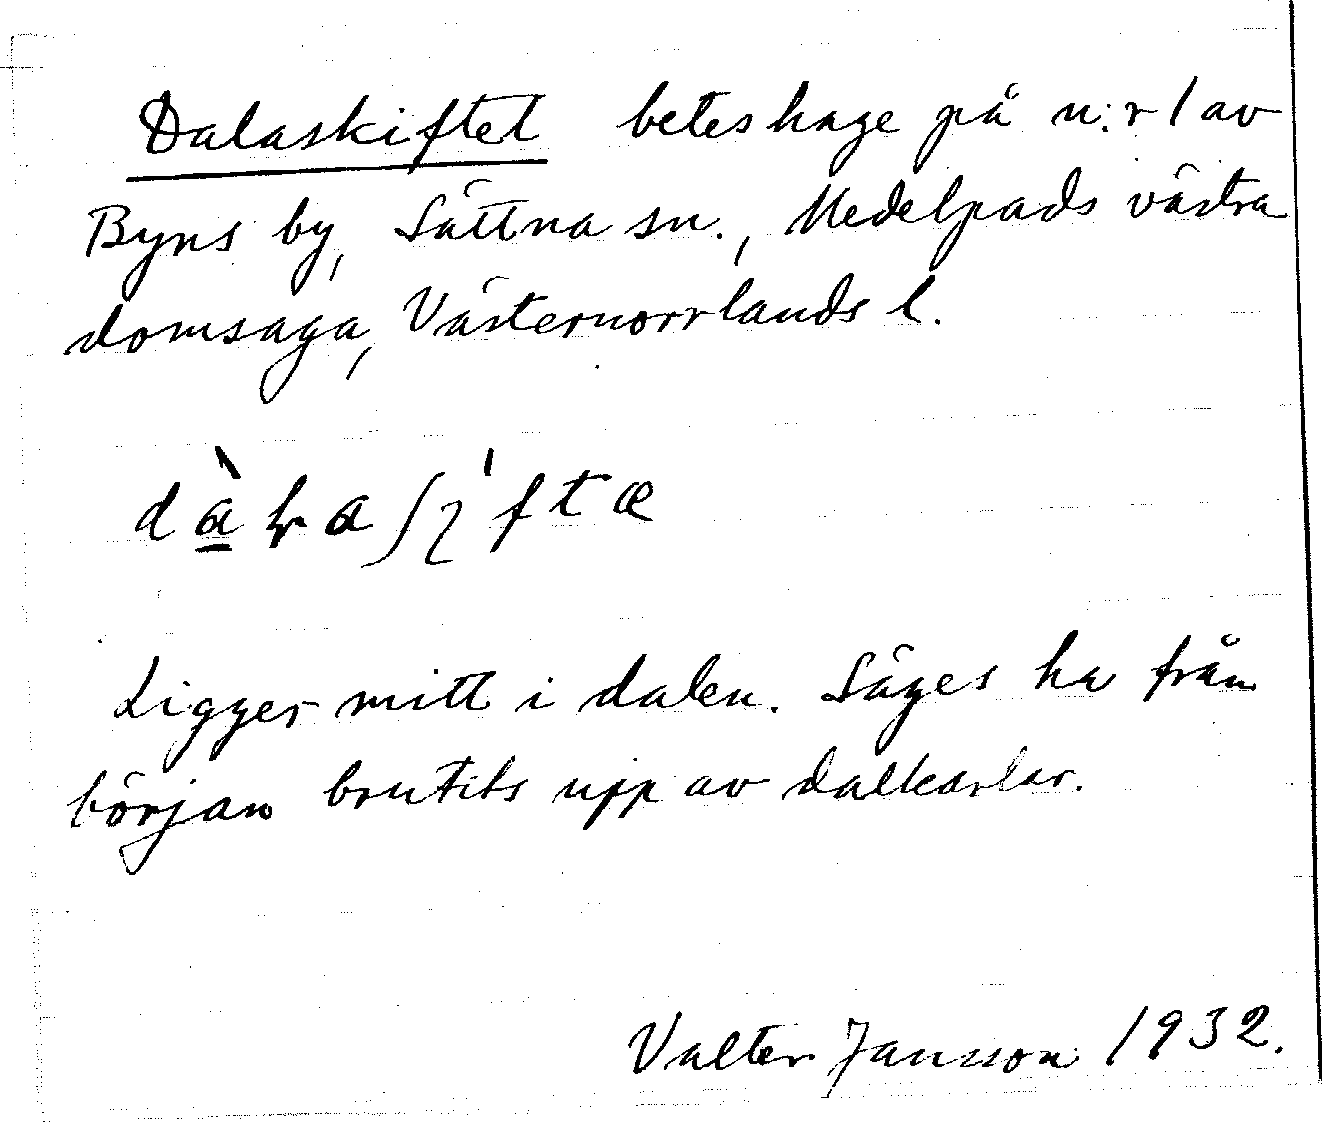 Dalaskiftet beteshage på n:r 1 av
Byns by, Sättna sn., Medelpads västra
domsaga, Västernorrlands l.
Ligger mitt i dalen. Säges ha från
början brutits upp av dalkarlar.
Valter Jansson 1932.